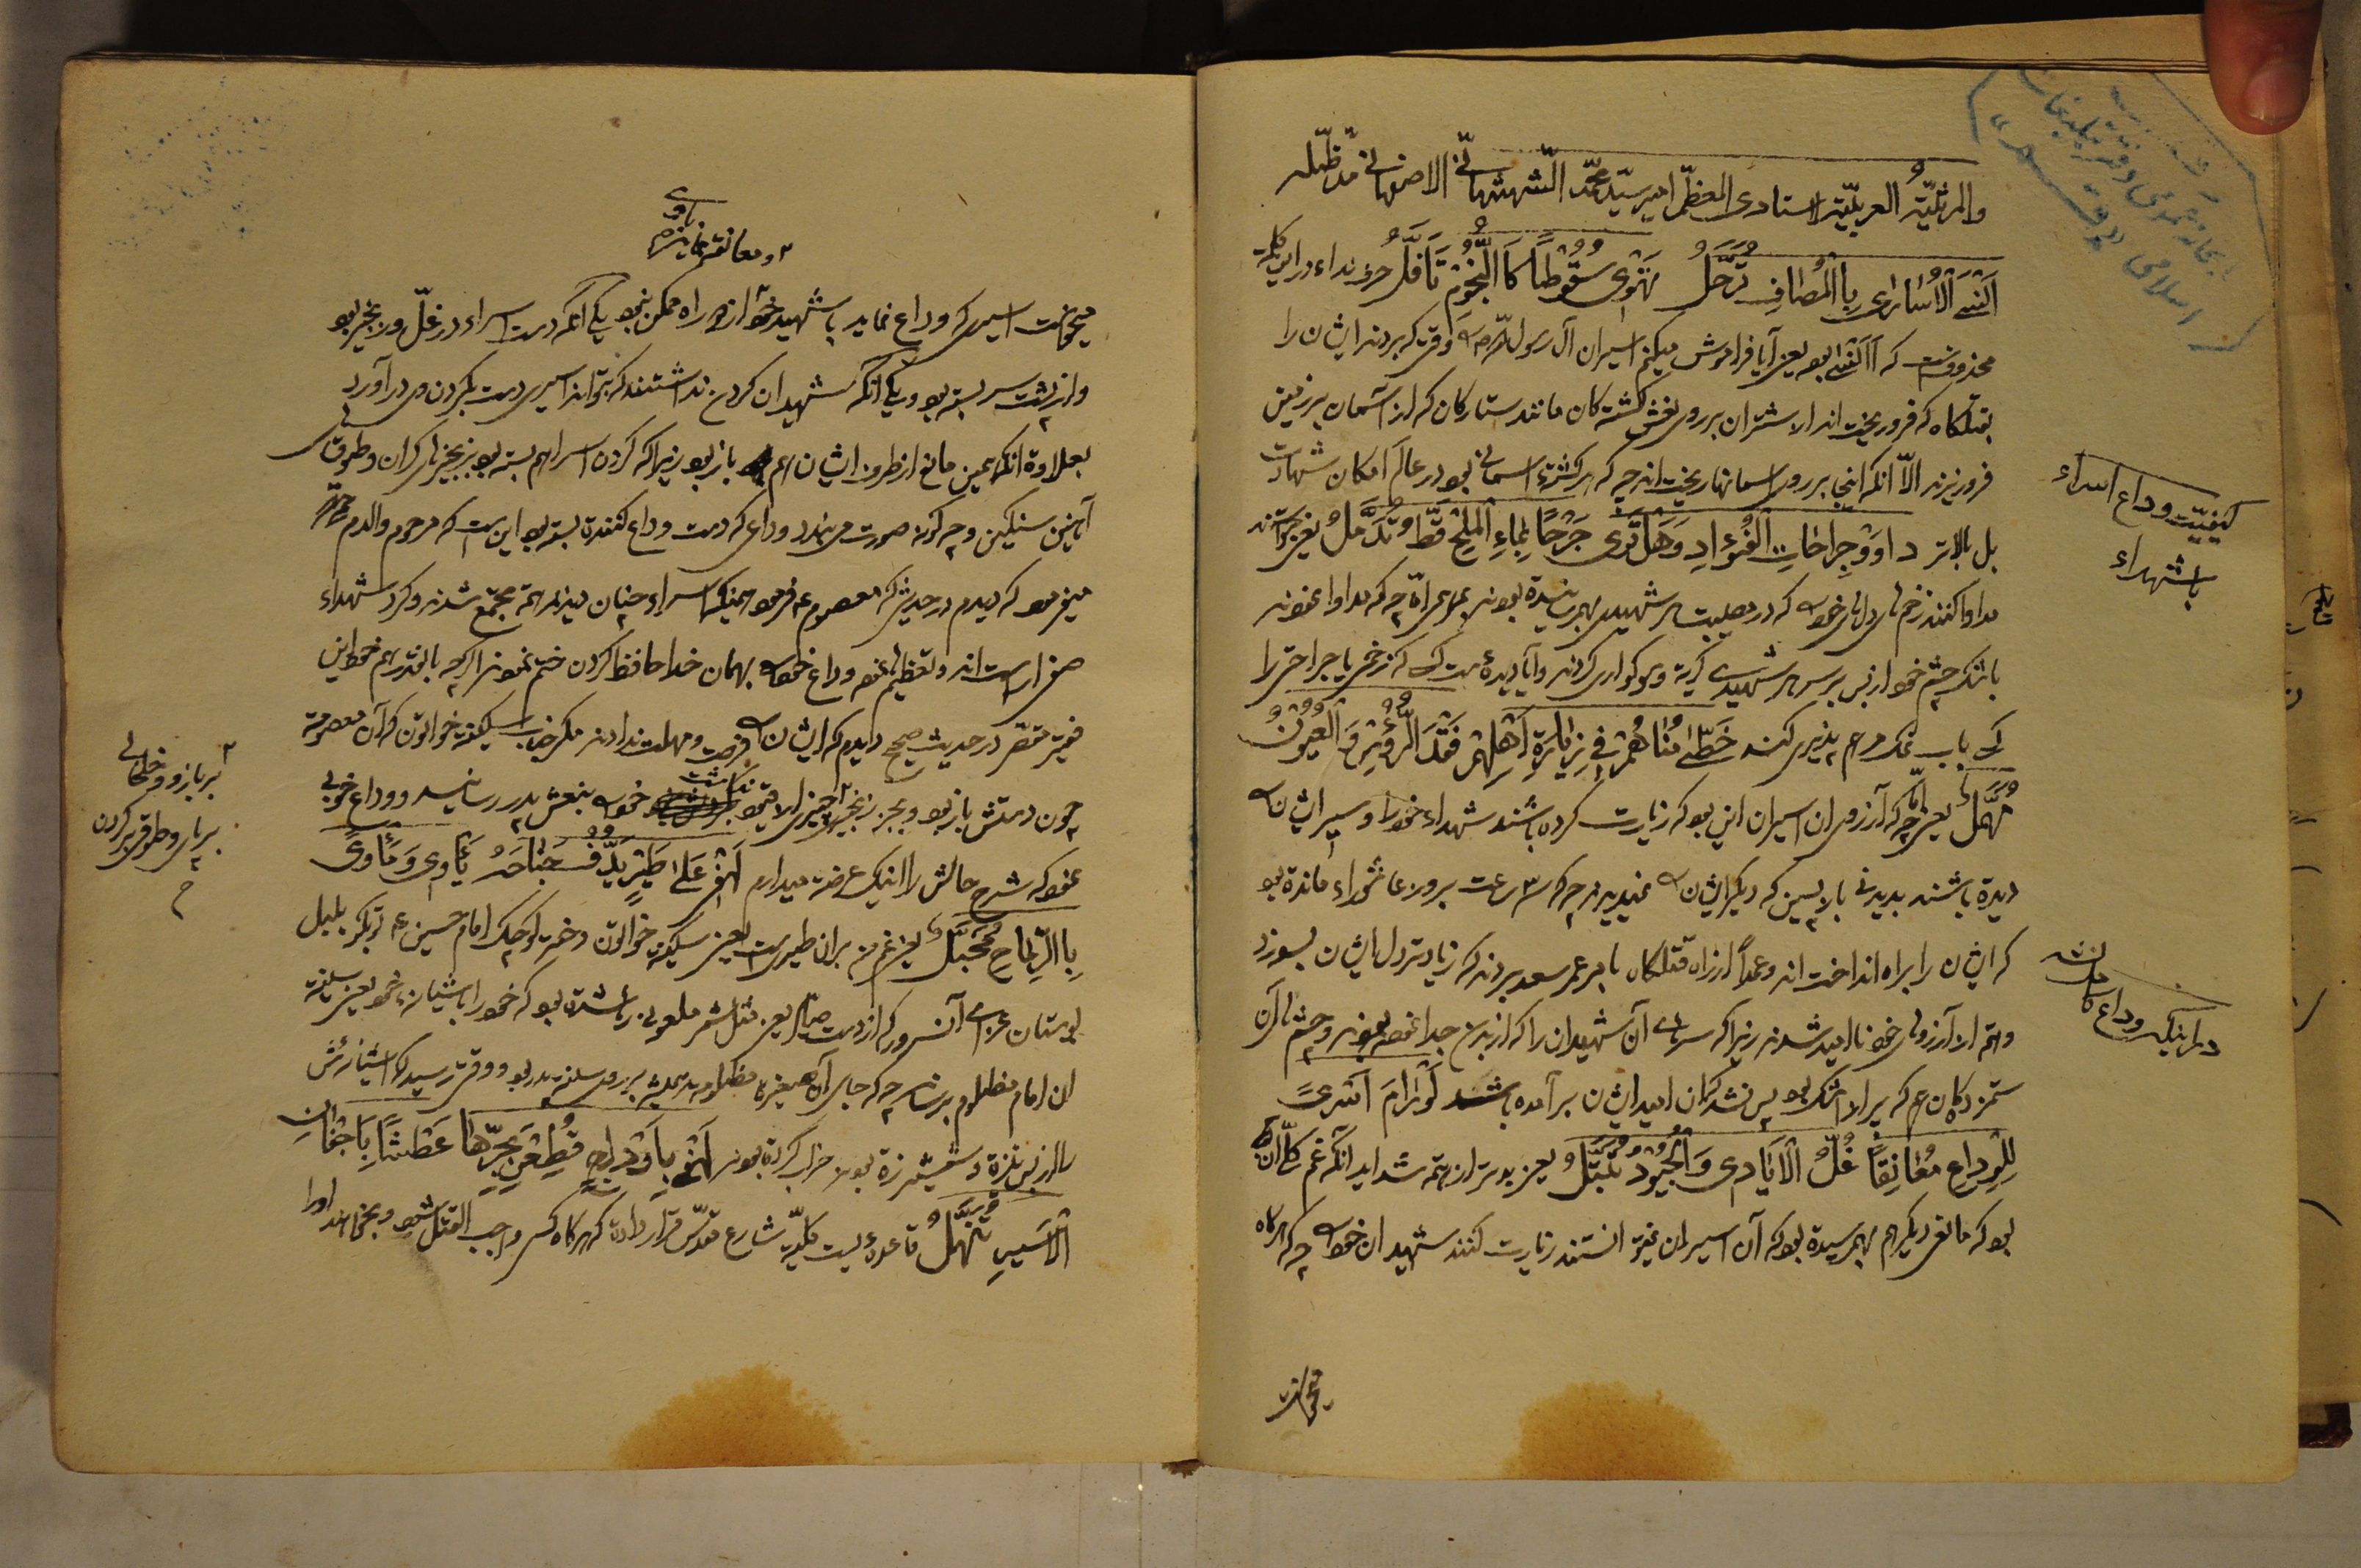 والمرثیّةُ العربیّة لاستادی المعظّم امیر سیّد محمّد الشهشهانی الاصفهانی مدّ ظلّه
اَنْسَی الْاُسٰارٰی بِالْمَصٰافِ تُرَحَّلُ تَهْوٰی سُقُوطاً کَالنُّجُومِ تَاَفَّلُ حرف نداء در این کلمه
محذوفست که أاَنسی بود یعنی آیا فراموش میکنم اسیران آل رسول الله ص را وقتی که بردند ایشان را
بقتلگاه که فرو ریختند از اشتران بر روی نعش کشتگان مانند ستارگان که از آسمان بر زمین
فرو ریزند الّا آنکه اینجا بر روی آسمانها ریختند چه که هر کشتهٔ آسمانی بود در عالم امکان شهادت
بل بالاتر دٰاوَوْا جِرٰاحٰاتِ الْفُؤٰادِ وَهَلْ تَرٰی جَرْحاً بِمٰاءِ الْمِلْحِ قَطُّ تُدَمَّلُ یعنی خواستند
مداوا کنند زخمهای دل خود که در مصیبت هر شهیدی بهمرسیده بودند
باشک چشم خود از بس بر سر هر شهیدی گریه و سوگواری کردند و آیا دیدهٔ هست کسی که زخمی یا جراحتی را
که بآب نمک مرهم پذیری کند خَطَّئ مُنٰاهُمْ فی زِیٰارَةِ اَهْلِهِمْ فَقَدَ الرُّؤُسَ وَالْعُیُونُ
تُهَمَّلُ یعنی چه که آرزوی آن اسیران این بود که زیارت کرده باشند شهداء خود را و سیر ایشان
دیده باشند بدیدنی باز پسین که دیگر ایشان نمیدیدند چه که ۳ ساعت بروز عاشوراء مانده بود
که ایشان را براه انداختند و عمداً از راه قتلگاه بامر عمر سعد بردند که زیادتر دل ایشان بسوزد
و همه از آرزوی خود ناامید شدند زیرا که سرهای آن شهیدان را که از بدن جدا نموده بودند و چشمهای آن
ستمزدگان هم که پر از اشک بود پس نشد که آن امید ایشان برآمده باشد لَوْ رٰامَ اَسْریً
لِلْوِدٰاعِ مُعٰانِقاً غُلُّ الْاَیٰادی وَالْجُیُودُ مُنَبَّلُ یعنی بدتر از همه شداید آنکه غم کلّ آن
بود که مانعی دیگر هم بهمرسیده بود که آن اسیران نمیتوانستند زیارت کنند شهیدان خود را چه که هرگاه
میخواست
کیفیّت وداع اسراء
با شهداء
در اینکه وداع کامل نشد
و معانقه نماید
میخواست اسیری که وداع نماید با شهید خود از دو راه ممکن نبود یکی آنکه دست اسراء در غلّ و زنجیر بود
و از پشت سر بسته بود و یکی آنکه شهیدان گردن نداشتند که بتواند اسیری دست بگردن وی درآورد
بعلاوه آنکه همین مانع از طرف ایشان هم باز بود زیرا که گردن اسرا هم بسته بود بزنجیرهای گران و طوقهای
آهنین سنگین و چگونه صورت می‌بندد وداعی که دست وداع کننده بسته بود این است که مرحوم والدم
میفرمود که دیدم در حدیثی که معصوم ع فرمود همینکه اسراء چنان دیدند همه مجتمع شدند و گرد شهداء
صف راست اند و تعظیم نموده وداع خود را بهمان خدا حافظ کردن ختم نمودند اگرچه بالفتره هم خود این
فقیر مقصّر در حدیث صحیح دیدم که ایشان را فرصت و مهلت ندادند مگر جناب سکینه خواتون که آن معصومه
چون دستش باز بود و بجز زنجیر چیزی الا قیود نداشت خود را بنعش پدر رسانید و وداع خوبی
نمود که شرح حالش را اینک عرضه میدارم لَهْفی عَلیٰ طَیْرٍ یَدُفُّ جَنٰاحَهُ یَأوی وَمَأویً
بِالرِّمٰاحِ مُحَجَّلُ یعنی غم من بر آن طیریست یعنی سکینه خواتون دختر کوچک امام حسین ع تو بگو بلبل
بوستان عزای آنسرور که از دست صیّاد یعنی مثل شمر ملعونی رها شده بود که خود را بآشیانهٔ خود یعنی سینه
آن امام مظلوم برساند چه که جای آن صغیرهٔ مظلومه همیشه بر روی سینه پدر بود و وقتی رسید که آشیانه‌اش
را از بس نیزه و شمشیر زده بودند خراب کرده بودند لَهْفی بِاَوْدٰاجٍ قُطِعْنَ بِحَرِّهٰا عَطْشٰا بِاَجْفٰانِ
الْاَسیرِ تَنَهَّلُ قاعدهٔ ایست کلیّه شارع مقدّس قرار داده که هرگاه کسی واجب القتل شود و بخواهند او را
بر بازو و خلخالی
بر پای و طوقی بر گردن